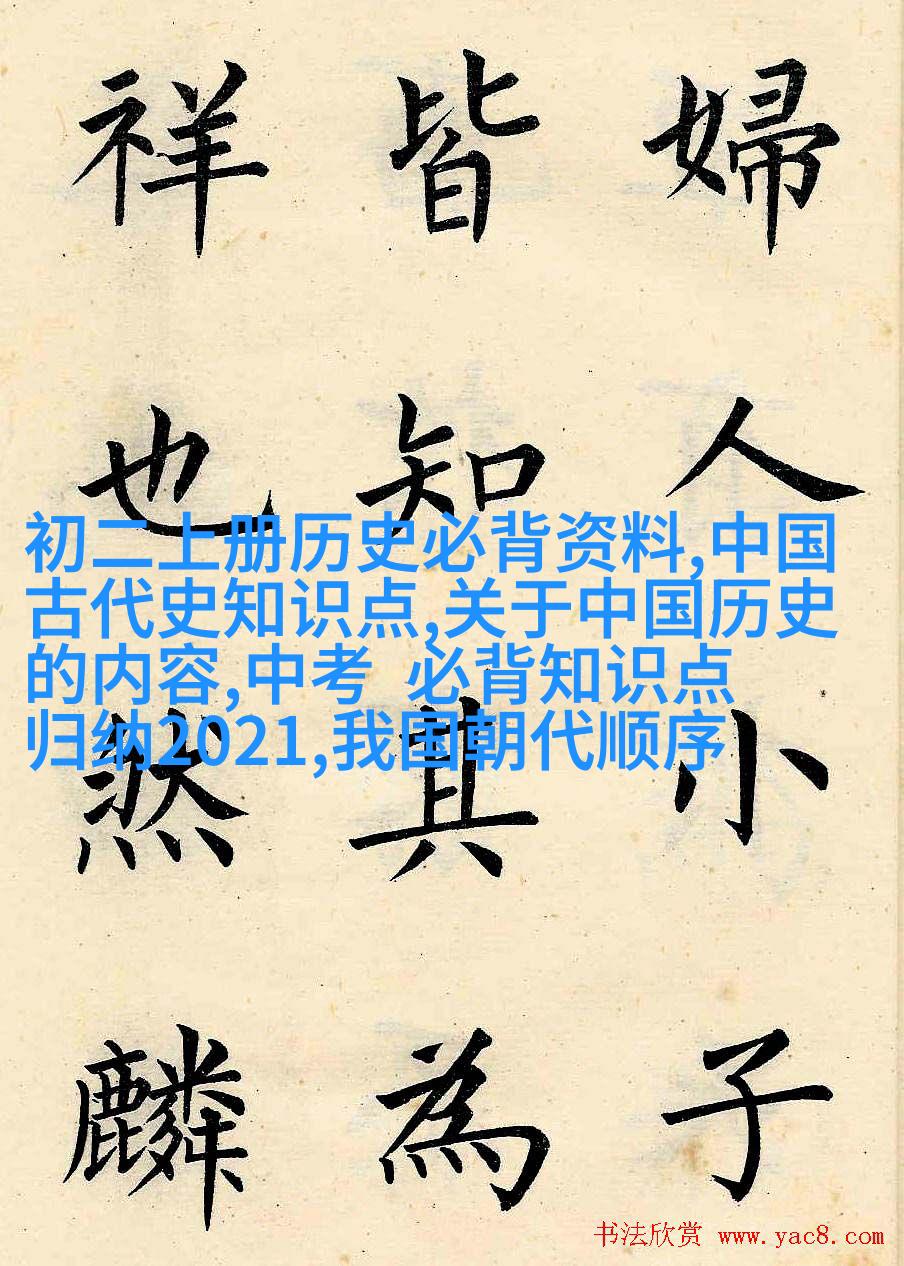 婦人小子
皆知其為
祥也然麟
初二上册历史必背资料,中国
古代史知识点,关于中国历史
的内容,中考 必背知识点
归纳2021,我国朝代顺序
书法欣赏 www.yac8.com